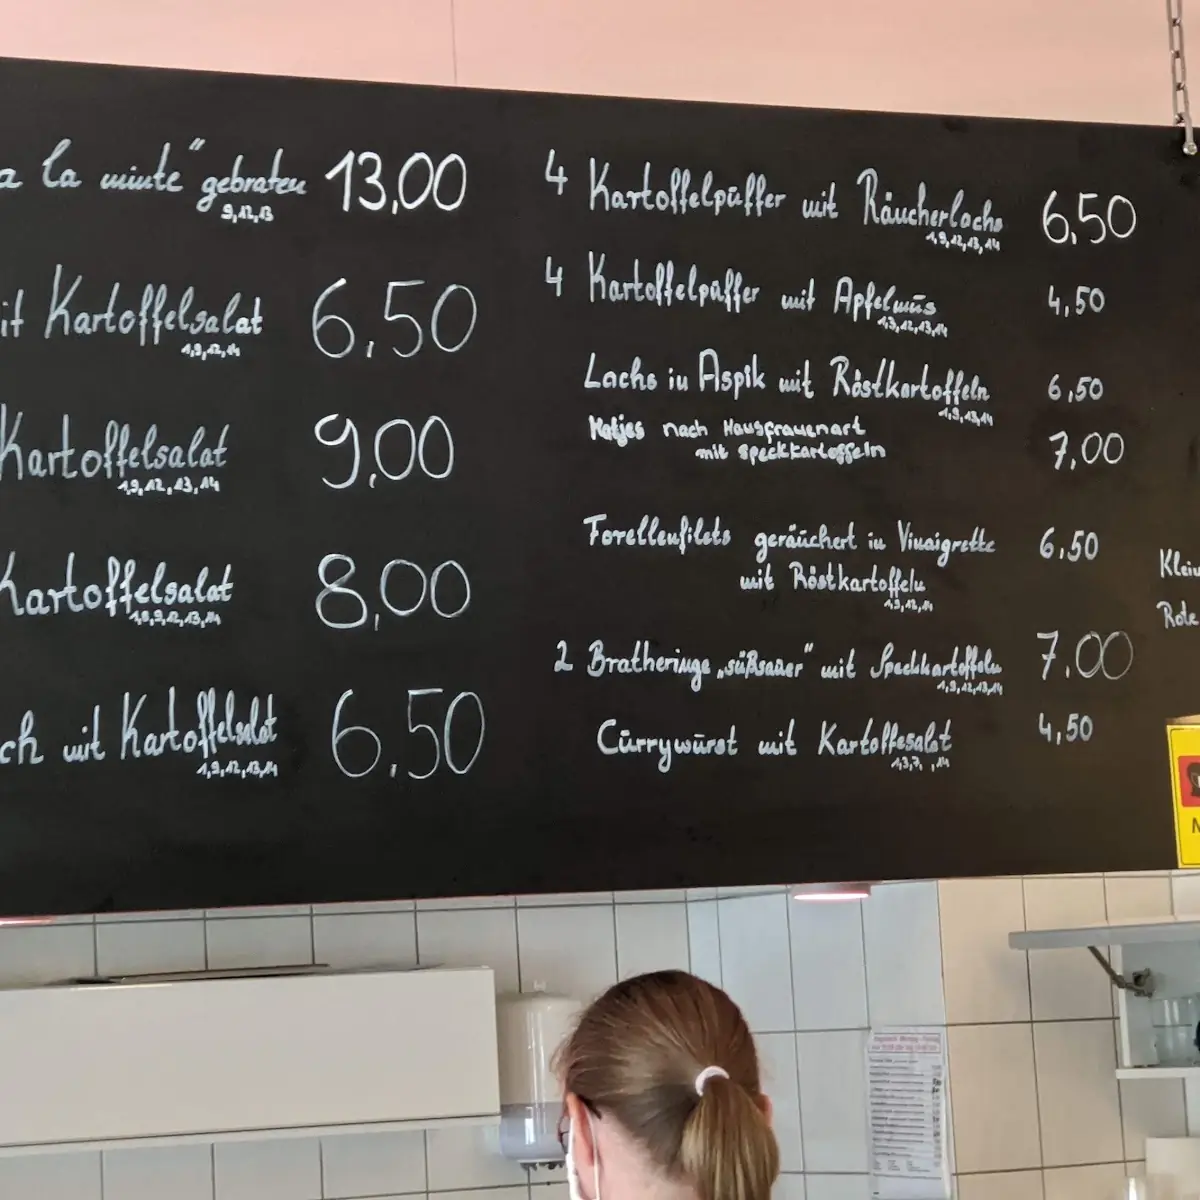 a la minute" gebraten 13,00
9,12,13
it Kartoffelsalat 6,50
1,9,12,14
Kartoffelsalat 9,00
1,9,12,13,14
Kartoffelsalat 8,00
1,8,9,12,13,14
ch mit Kartoffelsalat 6,50
1,9,12,13,14
4 Kartoffelpüffer mit Räucherlachs 6,50
1,9,12,13,14
4 Kartoffelpüffer mit Apfelmūs 4,50
1,3,12,13,14
Lachs in Aspik mit Röstkartoffeln 6,50
1,9,13,14
Matjes nach Hausfrauenart 7,00
mit Speckkartoffeln
Forellenfilets geräuchert in Vinaigrette 6,50
mit Röstkartoffeln
1,9,12,14
2 Bratheringe „süßsauer" mit Speckkartoffeln 7,00
1,9,12,13,14
Cūrrywūrst mit Kartoffesalat 4,50
1,3,7, ,14
Klein
Rote